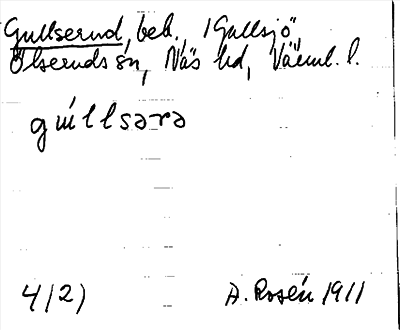 Gullserud, beb., 1 Gullsjö,
Ölseruds sn, Näs hd, Värml. l.
gúllsərə
4/2) A. Rosén 1911